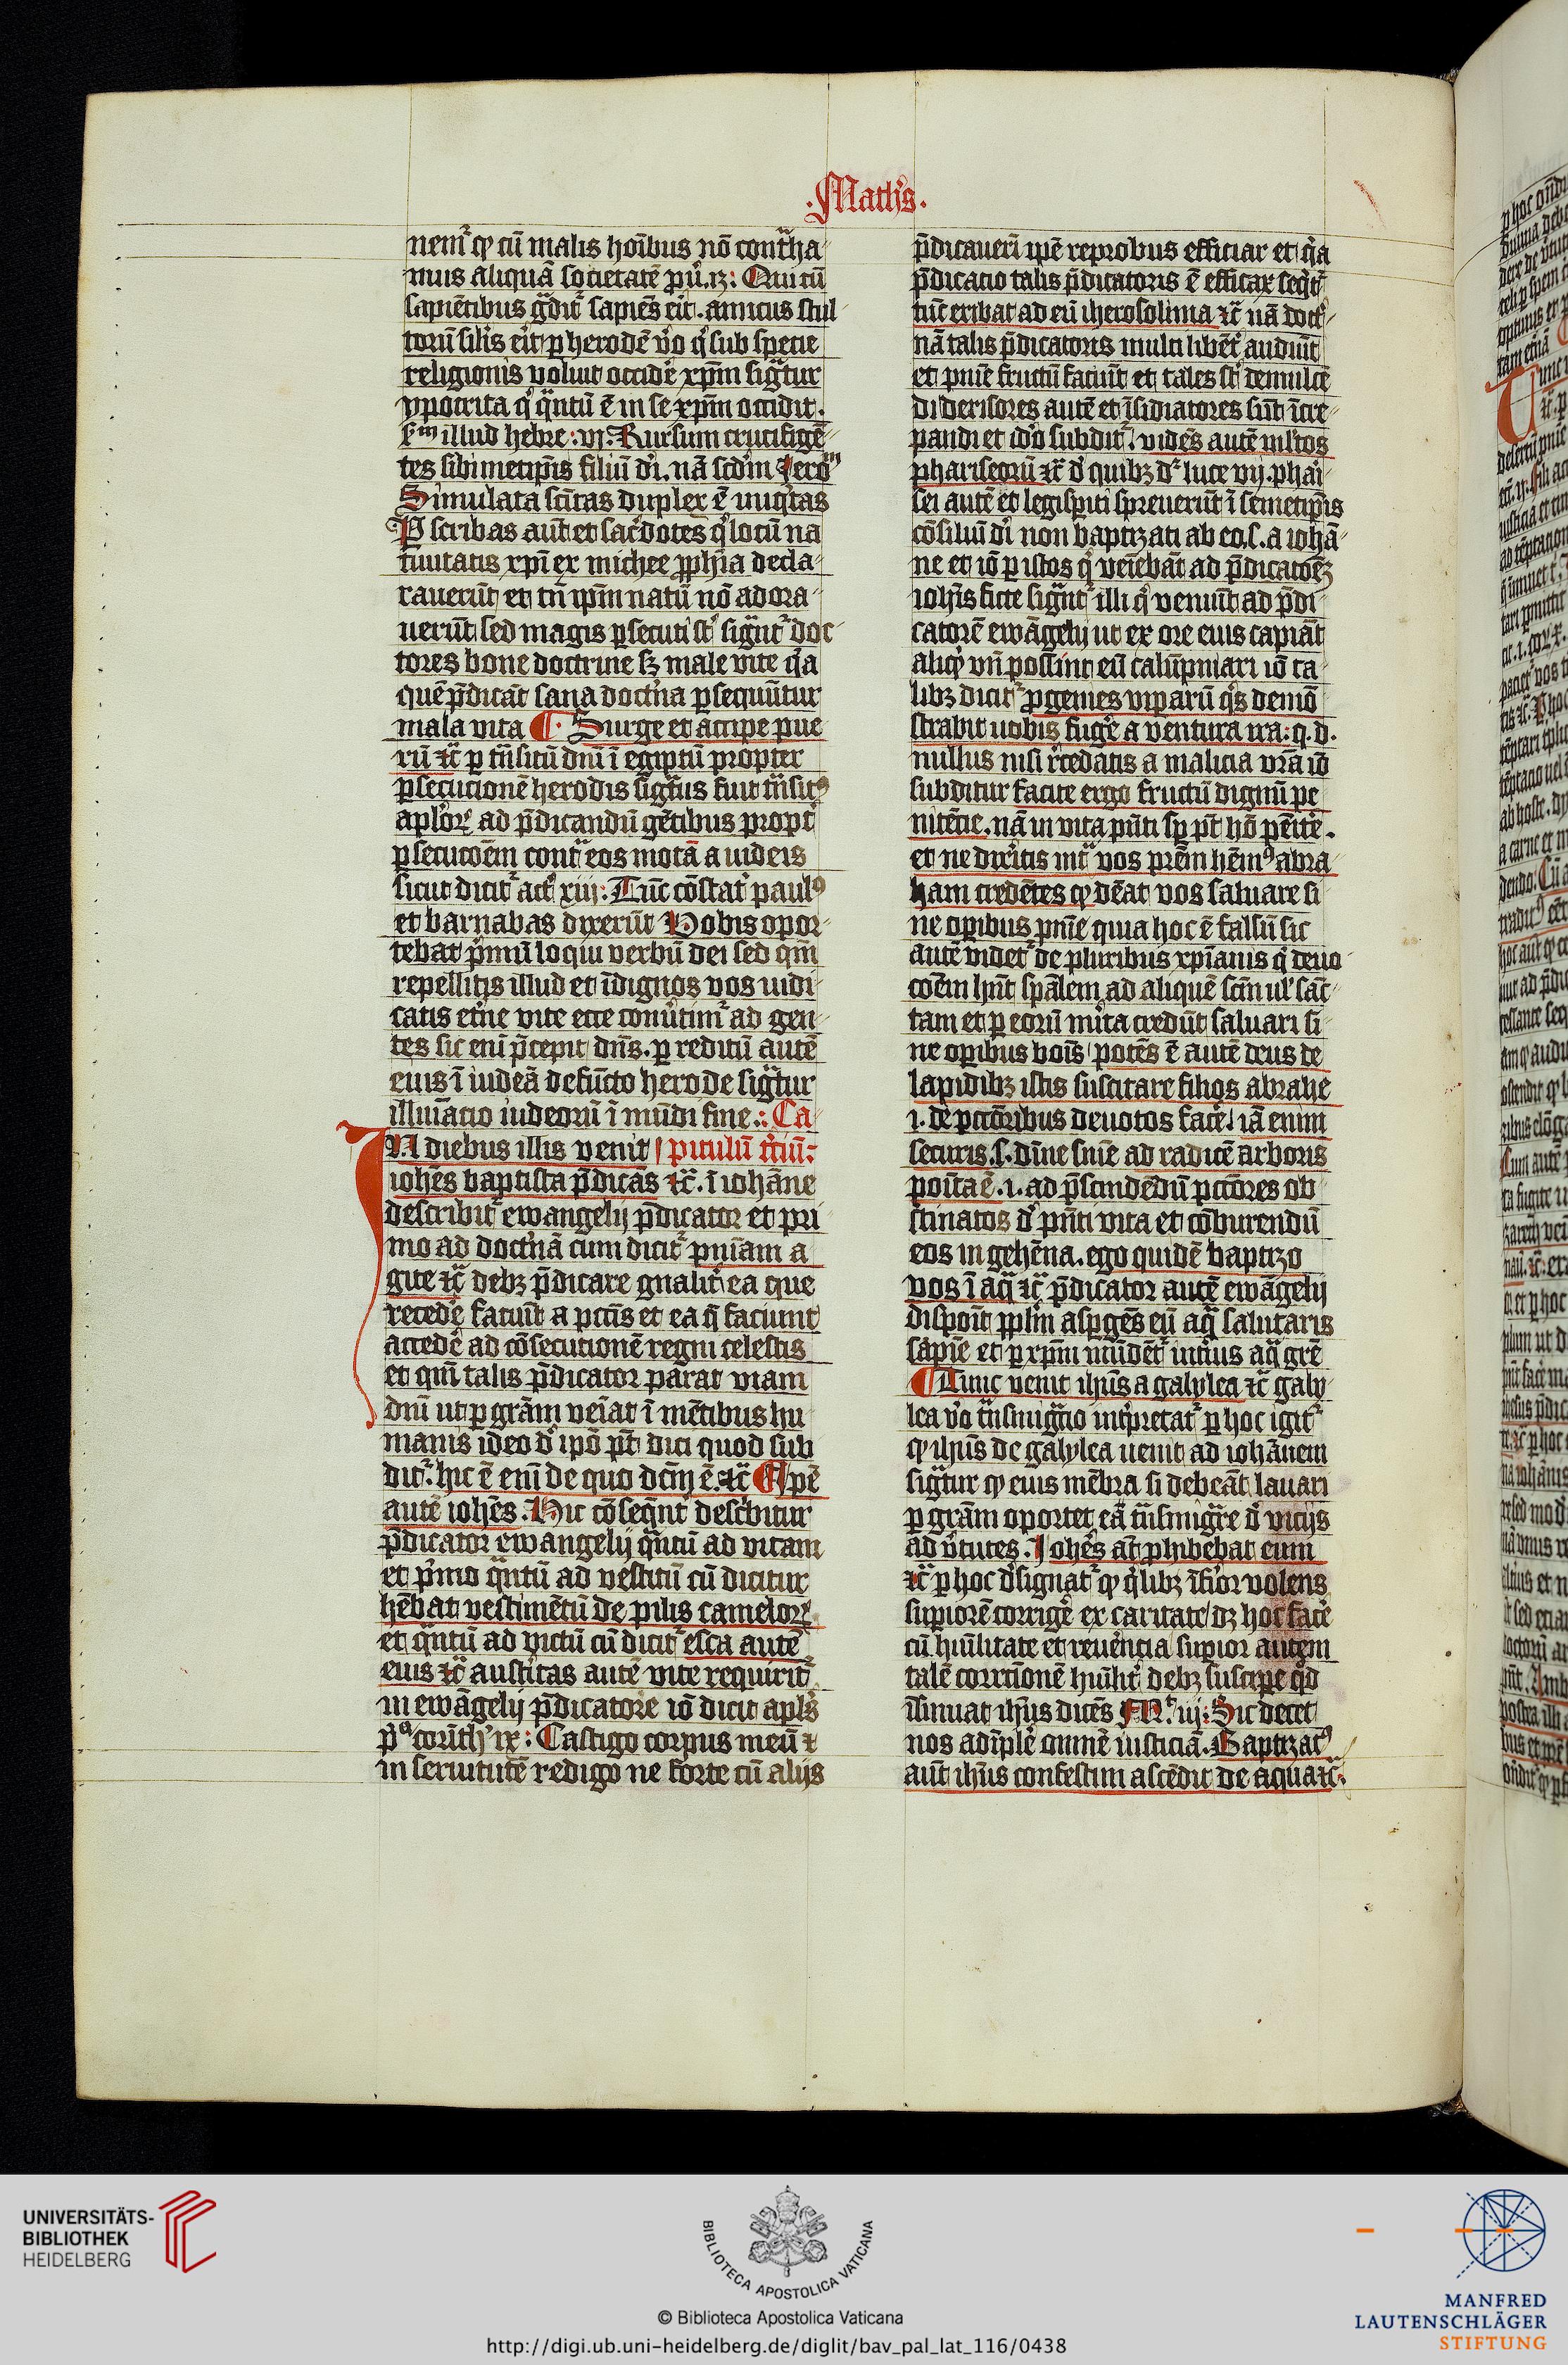 .Math's.
nem² ꝙ cū malis hoībus nō cont̃ha
mus aliquā societatē pū.13: Qui cū
sapiētibus gͣdit² sapiēs eīt. amicus stul
torū silīs eīt ꝑ herodē v̊o qͥ sub specie
religionis voluit occidͤe xp̄m sigͣtur
ypocrita qͥ qͣntū ē in se xp̄m occidit.
illud hebre: vj: Rursum crucifigē
tes sibimetip̄is filiū dī. nā scdm Jeroᵐ
Simulata scītas duplex ē iniqͥtas
P scribas aūt et sacͤdotes qͥ locū na
tiuitatis xpī ex michee ꝓph̄ia decla
rauerūt et tn̄ ip̄m natū nō adora
uerūt sed magis ꝑsecuti st̄ sigͣnt² doc
tores bone doctrine sꝫ male vite qͥa
quē p̄dicāt sana doctͥna ꝑsequūtur
mala vita ¶ Surge et accipe pue
rū ⁊c̄ ꝑ tͣnsitū dn̄i ī egiptū propter
ꝑsecucionē herodis sigͣtus fuit tͣnsitꝰ
apl'oꝝ ad p̄dicandū gētibus propt̄
ꝑsecucōem contͣ eos motā a iudeis
sicut dicit² act̄ xiij: Tūc cōstāt² paulꝰ
et barnabas dixerūt Vobis opor
tebat pͥmū loqui verbū dei sed qm̄
repellitis illud et īdignos vos iudi
catis et̄ne vite ecce conūtim² ad gen
tes sic enī p̄cepit dn̄s. ꝑ reditū autē
eius ī iudeā defūcto herode sigͣtur
illūiacio iudeorū ī mūdi fine.: Ca
IN diebus illis venit pitulū tͥciū:
ioh̄es baptista p̄dicās ⁊c̄. ī iohāne
describit² ewangelij p̄dicator et pri
mo ad doctͥnā cum dicit² pn̄iam a
gite ⁊c̄ debꝫ p̄dicare gn̄alit² ea que
recedͤe faciūt a pct̄is et ea q̄ faciunt
accedͤe ad cōsecutionē regni celestis
et qm̄ talis p̄dicator parat viam
dn̄i ut ꝑ grām veīat ī mētibus hu
manis ideo dͤ ip̄o pt̄ dici quod sub
dit²: hic ē enī de quo dc̄m ē ⁊c̄ ¶ Ip̄e
autē ioh̄es. Hic cōseqͣnt² describitur
p̄dicator ewangelij qͣntū ad vitam
et pͥmo qͣntū ad vestitū cū dicitur
h̄ebat vestimētū de pilis cameloꝝ
et qͣntū ad victū cū dicit² esca autē
eius ⁊c̄ austͥitas autē vite requirit²
in ewāgelij p̄dicatore iō dicit apl's
pͣ corīth' ix: Castigo corpus meū ⁊
in seruitutē redigo ne forte cū alijs
p̄dicauerī ip̄e reprobus efficiar et qͥa
p̄dicacio talis p̄dicatoris ē efficax seqͥt²
tūc exibat ad eū iherosolima ⁊c̄ nā doctͥ
nā talis p̄dicatoris multi libēt² audiūt
et pn̄ie fructū faciūt et tales st̄ demulcē
di derisores autē et īsidiatores sūt īcre
pandi et id̊o subdit²: videns autē ml̄tos
phariseorū ⁊c̄ dͤ quibꝫ dͬ luce vij. phai
sei autē et legisꝑiti spreuerūt ī semetip̄is
cōsiliū dī non baptizati ab eo.s. a iohā
ne et iō ꝑ istos qͥ veiēbāt ad p̄dicatōeꝫ
ioh̄is ficte sigͣnt² illi qͥ veniūt ad p̄di
catorē ewāgelij ut ex ore eius capiāt
aliqͥd vn̄ possint eū calūpniari iō ta
libꝫ dicit² ꝓgenies viꝑarū qͥs demō
strabit uobis fugͤe a ventura ira: q.d.
nullus nisi rͤcedatis a malicia vrā iō
subditur facite ergo fructū dignū pe
nitēcie. nā in vita p̄nti sꝑ pt̄ hō pēite².
et ne dixͥitis intͣ vos prēm hēmꝰ abra
ham credētes ꝙ dēat vos saluare si
ne oꝑibus pn̄ie quia hoc ē falsū sic
autē videt² de pluribus xpīanis qͥ deuo
cōem hn̄t spālem ad aliquē scm̄ ul' sāc
tam et ꝑ eorū mͥita credūt saluari si
ne oꝑibus boīs potēs ē autē deus de
lapidibꝫ istis suscitare filios abrahe
.i. de pct̄oribus deuotos facͤe: iā enim
securis.s. dīne sn̄ie ad radicē arboris
poīta ē .i. ad p̄scindēdū pct̄ores ob
stinatos dͤ p̄nti vita et cōburendū
eos in gehēna. ego quidē baptizo
vos ī aqͣ ⁊c̄ p̄dicator autē ewāgelij
dispoīt ppl̄m asꝑgēs eū aqͣ salutaris
sapīe et ꝑ xp̄m mūdēt² intͥus aqͣ grē
¶ Tunc venit ih̄us a galylea ⁊c̄ galy
lea v̊o tͣnsmigͣcio int̄ꝑretat² ꝑ hoc igit²
ꝙ ih̄us de galylea uenit ad iohānem
sigͣtur ꝙ eius mēbra si debeāt lauari
ꝑ grām oportet eā tͣnsmigͣre dͤ vicijs
ad v̄tutes. Joh̄es aūt ꝓhibebat eum
⁊c̄ ꝑ hoc dͤsignat² ꝙ qͥlibꝫ īfͥior volens
suꝑiorē corrigͤe ex caritate dꝫ hoc facͤe
cū hūilitate et reuēncia suꝑior autem
talē correctionē hūilit² debꝫ suscipͤe qͥd
īsinuat ih̄us dicēs Mͭ iij: Sic decet
nos adīplͤe omnē iusticiā. Baptizatꝰ
aūt ih̄us confestim ascēdit de aqua ⁊c̄:
UNIVERSITÄTS-
BIBLIOTHEK
HEIDELBERG
BIBLIOTECA APOSTOLICA VATICANA
© Biblioteca Apostolica Vaticana
http://digi.ub.uni-heidelberg.de/diglit/bav_pal_lat_116/0438
MANFRED
LAUTENSCHLÄGER
STIFTUNG